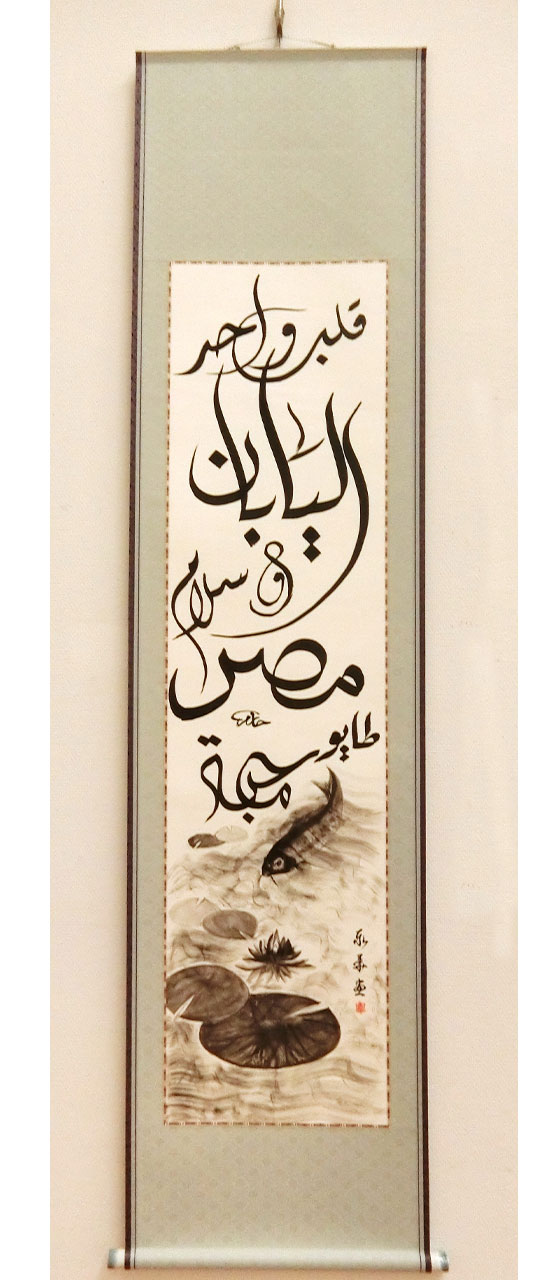 قلب واحد
اليابان
و سلام
مصر
طايو
محبة